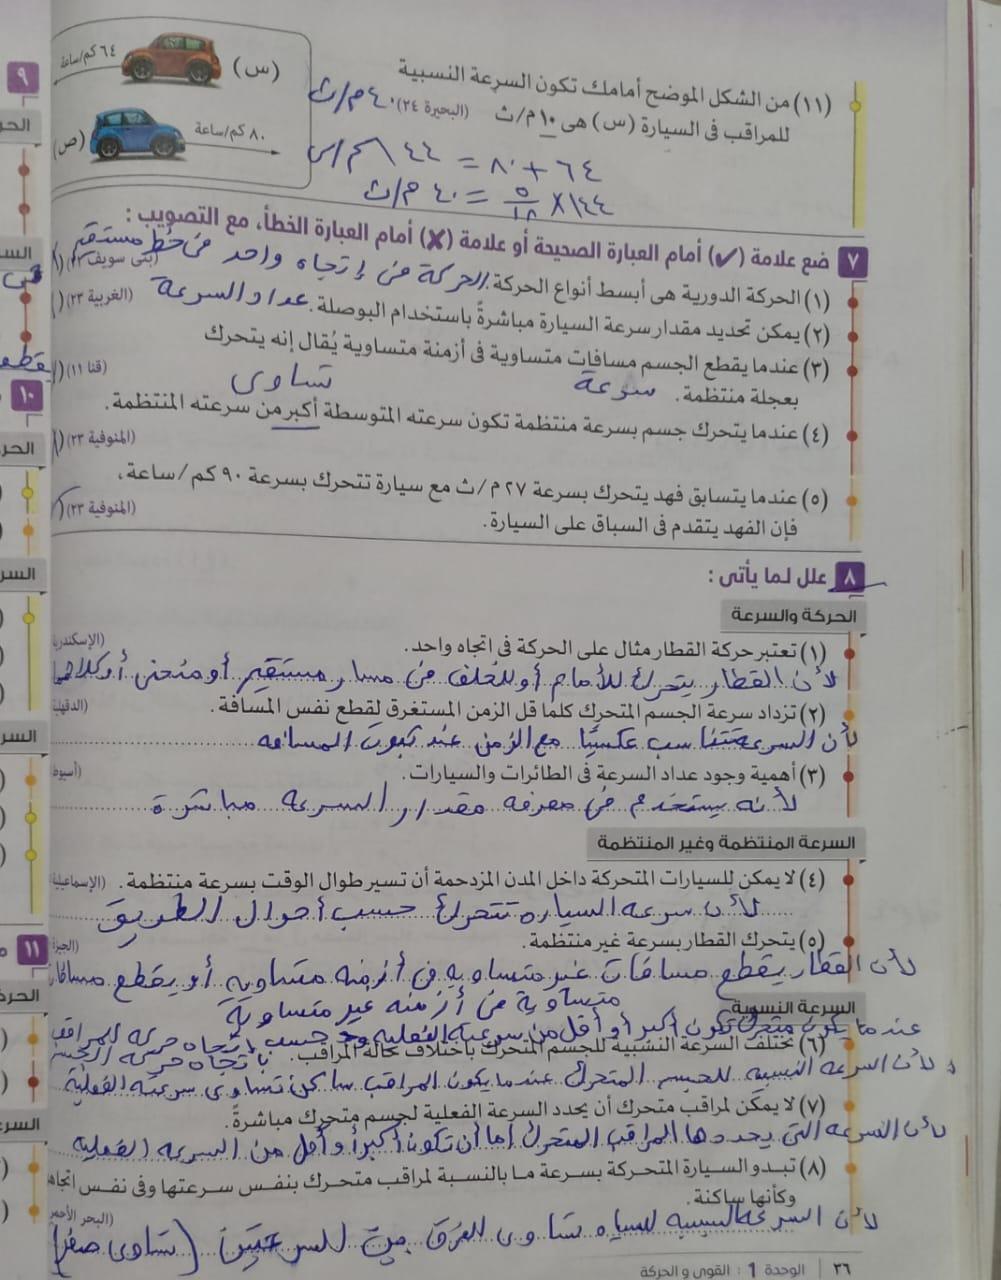 (١١) من الشكل الموضح أمامك تكون السرعة النسبية
للمراقب فى السيارة (س) هى ١٠ م/ث (البحيرة ٢٤) ٤٠ م/ث
٦٤ + ٨٠ = ١٤٤ كم/س
١٤٤ × ٥/١٨ = ٤٠ م/ث
٦٤ كم/ساعة
(س)
٨٠ كم/ساعة
(ص)
٧ ضع علامة (✓) أمام العبارة الصحيحة أو علامة (✗) أمام العبارة الخطأ، مع التصويب :
(١) الحركة الدورية هى أبسط أنواع الحركة. الحركة فى إتجاه واحد فى خط مستقيم (بنى سويف ٢٣)
(٢) يمكن تحديد مقدار سرعة السيارة مباشرةً باستخدام البوصلة. عداد السرعة (الغربية ٢٣)
(٣) عندما يقطع الجسم مسافات متساوية فى أزمنة متساوية يُقال إنه يتحرك
بعجلة منتظمة. سرعة (قنا ١١)
تساوى
(٤) عندما يتحرك جسم بسرعة منتظمة تكون سرعته المتوسطة أكبر من سرعته المنتظمة.
(المنوفية ٢٣)
(٥) عندما يتسابق فهد يتحرك بسرعة ٢٧ م/ث مع سيارة تتحرك بسرعة ٩٠ كم/ساعة،
فإن الفهد يتقدم فى السباق على السيارة. (المنوفية ٢٣)
٨ علل لما يأتى :
الحركة والسرعة
(١) تعتبر حركة القطار مثال على الحركة فى اتجاه واحد. (الإسكندرية
لأن القطار يتحرك للأمام أو للخلف فى مسار مستقيم أو منحنى أو كلاهما
(٢) تزداد سرعة الجسم المتحرك كلما قل الزمن المستغرق لقطع نفس المسافة. (الدقهلية
لأن السرعة تتناسب عكسيًا مع الزمن عند ثبوت المسافه
(٣) أهمية وجود عداد السرعة فى الطائرات والسيارات. (أسيوط
لأنه يستخدم فى معرفه مقدار السرعه مباشرة
السرعة المنتظمة وغير المنتظمة
(٤) لا يمكن للسيارات المتحركة داخل المدن المزدحمة أن تسير طوال الوقت بسرعة منتظمة. (الإسماعيلية
لأن سرعه السياره تتحرك حسب أحوال الطريق
(٥) يتحرك القطار بسرعة غير منتظمة. (الجيزة
لأن القطار يقطع مسافات غير متساويه فى أزمنه متساويه أو يقطع مسافات
متساوية فى أزمنه غير متساوية
السرعة النسبية
عندما يكون متحرك تكون أكبر أو أقل من سرعته الفعليه حسب إتجاه حركه المراقب
(٦) تختلف السرعة النسبية للجسم المتحرك باختلاف حالة المراقب. باتجاه حركه الجسم
لأن السرعه النسبيه للجسم المتحرك عندما يكون المراقب ساكن تساوى سرعته الفعلية
(٧) لا يمكن لمراقب متحرك أن يحدد السرعة الفعلية لجسم متحرك مباشرةً.
لأن السرعه التى يحددها المراقب المتحرك إما أن تكون أكبر أو أقل من السرعه الفعليه
(٨) تبدو السيارة المتحركة بسرعة ما بالنسبة لمراقب متحرك بنفس سرعتها وفى نفس اتجاه
وكأنها ساكنة. (البحر الأحمر
لأن السرعه النسبيه للسياره تساوى الفرق بين السرعتين (تساوى صفر)
٢٦ الوحدة 1 : القوى و الحركة
٩
١٠
١١